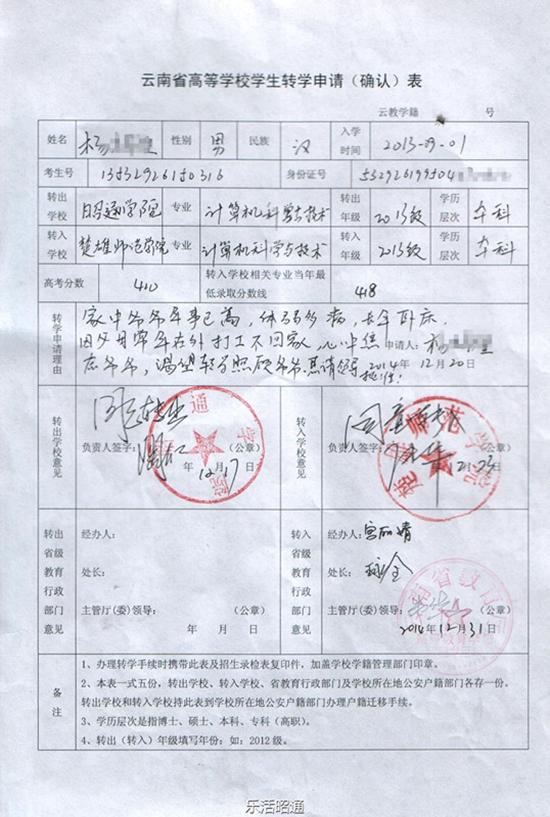 云南省高等学校学生转学申请（确认）表
云教学籍 号
姓名 杨 性别 男 民族 汉 入学时间 2013-09-01
考生号 身份证号
转出学校 昭通学院 专业 计算机科学与技术 转出年级 2013级 学历层次 本科
转入学校 楚雄师范学院 专业 计算机科学与技术 转入年级 2013级 学历层次 本科
高考分数 410 转入学校相关专业当年最低录取分数线 418
转学申请理由
家中爷爷年事已高，体弱多病，长年卧床
因父母常年在外打工不回家，心中焦 申请人：杨
虑爷爷，渴望转学照顾爷爷.恳请领导批准! 2014年12月20日
转出学校意见
同意转出
负责人签字： （公章）
年12月17日
通学院
转入学校意见
同意
负责人签字： （公章）
12.23
师范学院
转出省级教育行政部门意见
经办人：
处长：
主管厅(委)领导： （公章）
年 月 日
转入省级教育行政部门意见
经办人：
处长：
主管厅(委)领导： （公章）
2014年12月31日
南省教育
备注
1、办理转学手续时携带此表及招生录检表复印件，加盖学校学籍管理部门印章。
2、本表一式五份，转出学校、转入学校、省教育行政部门及学校所在地公安户籍部门各存一份。
转出学校和转入学校持此表到学校所在地公安户籍部门办理户籍迁移手续。
3、学历层次是指博士、硕士、本科、专科（高职）。
4、转出（转入）年级填写年份：如：2012级。
乐活昭通